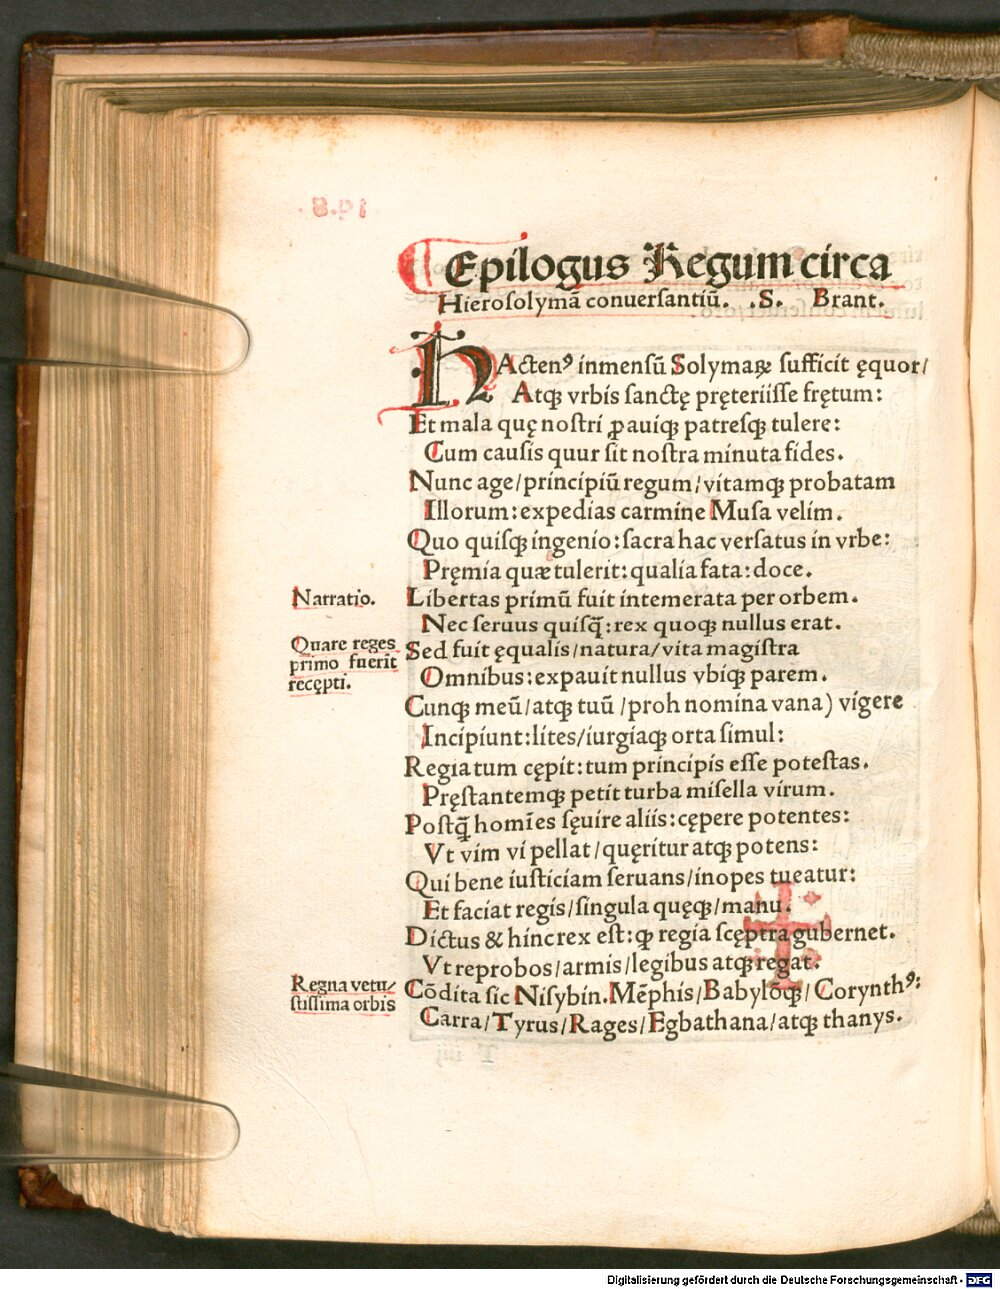 Epilogus Regum circa
Hierosolymā conuersantiū. .S. Brant.
HActenꝰ inmensū Solymaꝝ sufficit ęquor/
Atqꝫ vrbis sanctę pręteriisse frętum:
Et mala quę nostri ꝓauiqꝫ patresqꝫ tulere:
Cum causis quur sit nostra minuta fides.
Nunc age/principiū regum/vitamqꝫ probatam
Illorum: expedias carmine Musa velim.
Quo quisqꝫ ingenio: sacra hac versatus in vrbe:
Pręmia quæ tulerit: qualia fata: doce.
Narratio. Libertas primū fuit intemerata per orbem.
Nec seruus quisq̄: rex quoqꝫ nullus erat.
Quare reges
primo fuerīt
recępti.
Sed fuit ęqualis/natura/vita magistra
Omnibus: expauit nullus vbiqꝫ parem.
Cunqꝫ meū/atqꝫ tuū /proh nomina vana) vigere
Incipiunt: lites/iurgiaqꝫ orta simul:
Regia tum cępit: tum principis esse potestas.
Pręstantemqꝫ petit turba misella virum.
Postq̄ȝ homīes sęuire aliis: cępere potentes:
Vt vim vi pellat/quęritur atqꝫ potens:
Qui bene iusticiam seruans/inopes tueatur:
Et faciat regis/singula quęqꝫ/manu.
Dictus & hinc rex est: ꝙ regia scęptra gubernet.
Vt reprobos/armis/legibus atqꝫ regat.
Regna vetu/
stissima orbis
Cōdita sic Nisybin. Mēphis/Babylōqꝫ/Corynthꝰ:
Carra/Tyrus/Rages/Egbathana/atqꝫ thanys.
Digitalisierung gefördert durch die Deutsche Forschungsgemeinschaft - DFG